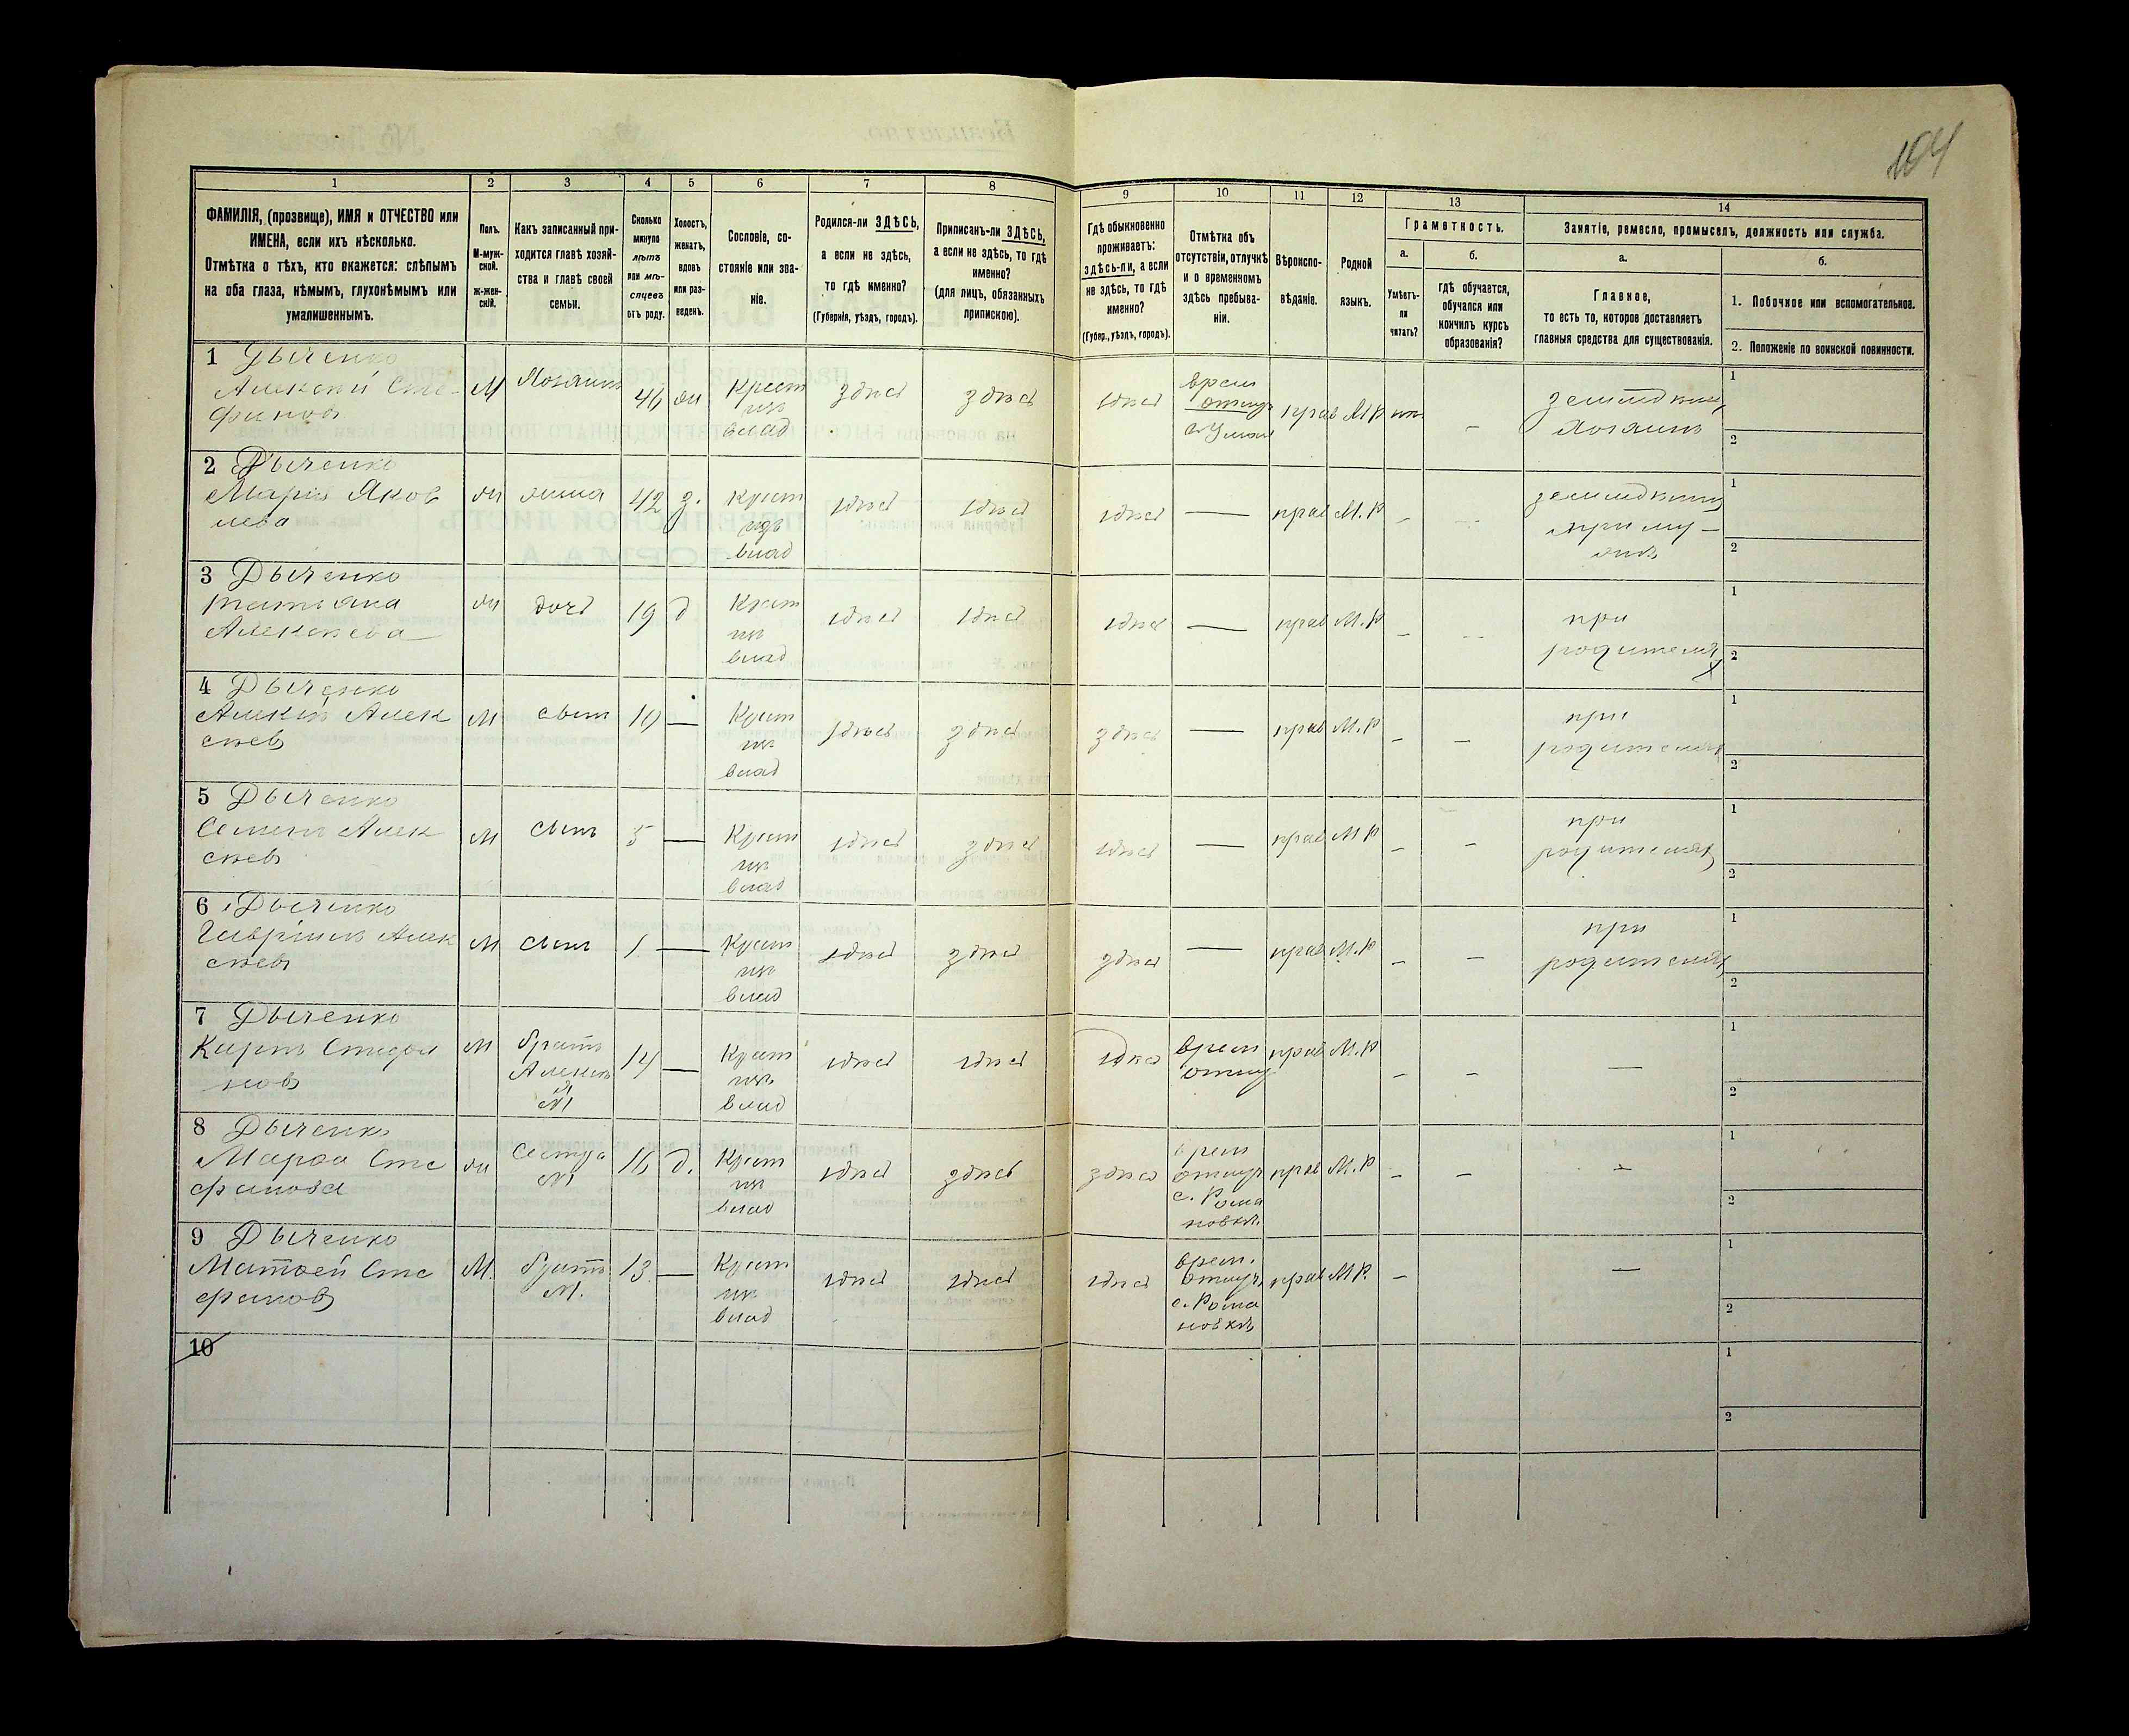 104
1 2 3 4 5 6 7 8 9 10 11 12 13 14
ФАМИЛІЯ, (прозвище), ИМЯ и ОТЧЕСТВО или
ИМЕНА, если ихъ нѣсколько.
Отмѣтка о тѣхъ, кто окажется: слѣпымъ
на оба глаза, нѣмымъ, глухонѣмымъ или
умалишеннымъ.
Полъ.
М-муж-
ской.
ж-жен-
скій.
Какъ записанный при-
ходится главѣ хозяй-
ства и главѣ своей
семьи.
Сколько
минуло
лѣтъ
или мѣ-
сяцевъ
отъ роду.
Холостъ,
женатъ,
вдовъ
или раз-
веденъ.
Сословіе, со-
стояніе или зва-
ніе.
Родился-ли ЗДѢСЬ,
а если не здѣсь,
то гдѣ именно?
(Губернія, уѣздъ, городъ).
Приписанъ-ли ЗДѢСЬ,
а если не здѣсь, то гдѣ
именно?
(для лицъ, обязанныхъ
припискою).
Гдѣ обыкновенно
проживаетъ:
здѣсь-ли, а если
не здѣсь, то гдѣ
именно?
(Губер., уѣздъ, городъ).
Отмѣтка объ
отсутствіи, отлучкѣ
и о временномъ
здѣсь пребыва-
ніи.
Вѣроиспо-
вѣданіе.
Родной
языкъ.
Грамотность.
а.
Умѣетъ-
ли
читать?
б.
гдѣ обучается,
обучался или
кончилъ курсъ
образованія?
Занятіе, ремесло, промыселъ, должность или служба.
а.
Главное,
то есть то, которое доставляетъ
главныя средства для существованія.
б.
1. Побочное или вспомогательное.
2. Положеніе по воинской повинности.
1 Дыченко
Алексѣй Сте-
фановъ
М Хозяинъ 46 жн Крест
изъ
влад здѣсь здѣсь здѣсь врем
отлуч
прав М.Р нѣт — земледѣліе
Хозяинъ
1
2
2 Дыченко
Марія Яков
лева
жн жина 42 з. Крест
изъ
влад здѣсь здѣсь здѣсь — прав М.Р — — земледѣліе
при му-
жѣ
1
2
3 Дыченко
Татьяна
Алексѣева
жн дочь 19 д Крест
изъ
влад здѣсь здѣсь здѣсь — прав М.Р — — при
родителях
1
2
4 Дыченко
Алексѣй Алек
сѣевъ
М сынъ 10 — Крест
изъ
влад здѣсь здѣсь здѣсь — прав М.Р — — при
родителях
1
2
5 Дыченко
Семенъ Алек
сѣевъ
М сынъ 5 — Крест
изъ
влад здѣсь здѣсь здѣсь — прав М.Р — — при
родителях
1
2
6 Дыченко
Гавріилъ Алек
сѣевъ
М сынъ 1 — Крест
изъ
влад здѣсь здѣсь здѣсь — прав М.Р — — при
родителях
1
2
7 Дыченко
Карпъ Стефа
новъ
М братъ
Алексѣя
№1 14 — Крест
изъ
влад здѣсь здѣсь здѣсь врем
отлуч прав М.Р — — —
1
2
8 Дыченко
Марѳа Сте
фанова
жн Сестра
№1 16 д. Крест
изъ
влад здѣсь здѣсь здѣсь врем
отлуч
с. Рома
новкѣ прав М.Р — — —
1
2
9 Дыченко
Матѳей Сте
фановъ
М. братъ
№1. 13 — Крест
изъ
влад здѣсь здѣсь здѣсь врем.
отлуч
с. Рома
новкѣ прав М.Р. — —
1
2
10
1
2